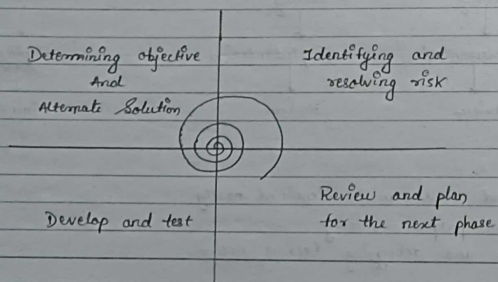 Determining objective
And
Alternate Solution
Identifying and
resolving risk
Develop and test
Review and plan
for the next phase